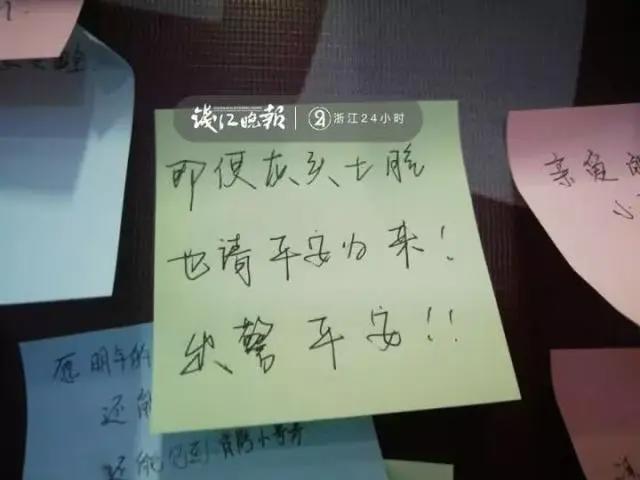 钱江晚报 浙江24小时
即便灰头土脸
也请平安归来!
出警平安!!
亲爱的
小
愿明年的
还能
还能